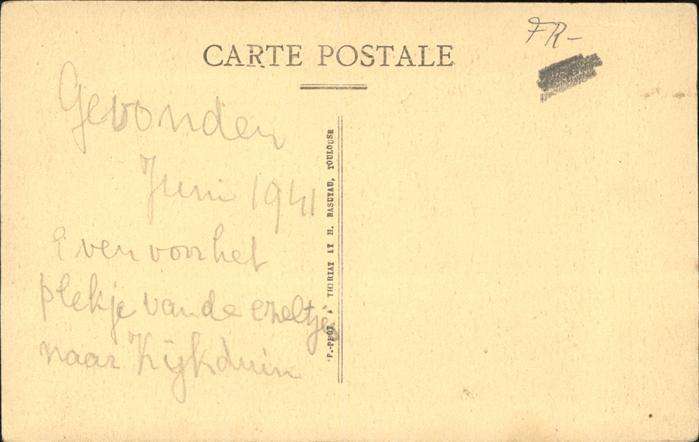 FR-
CARTE POSTALE
Gevonden
Juni 1941
Even voor het
plekje van de ezeltjes
naar Kijkduin
THERIAT ET H. BASUYAU, TOULOUSE